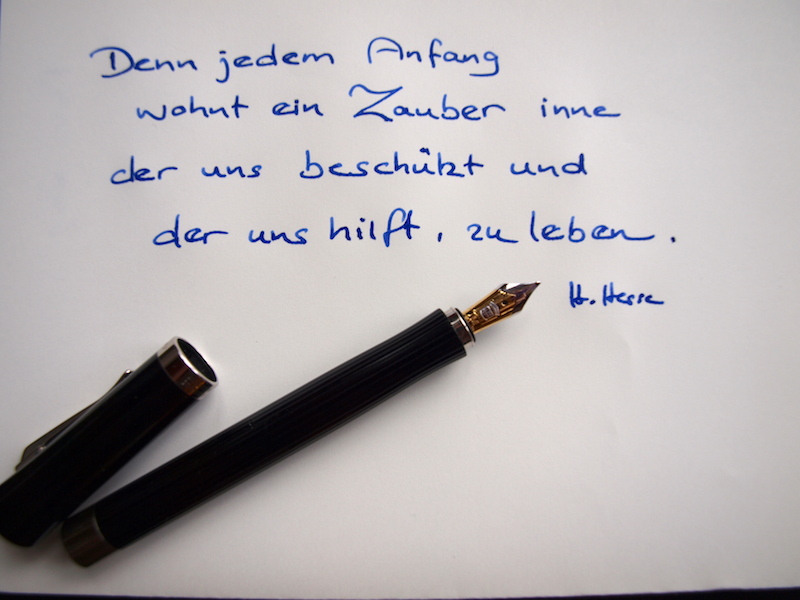 Denn jedem Anfang
wohnt ein Zauber inne
der uns beschützt und
der uns hilft, zu leben.
H. Hesse